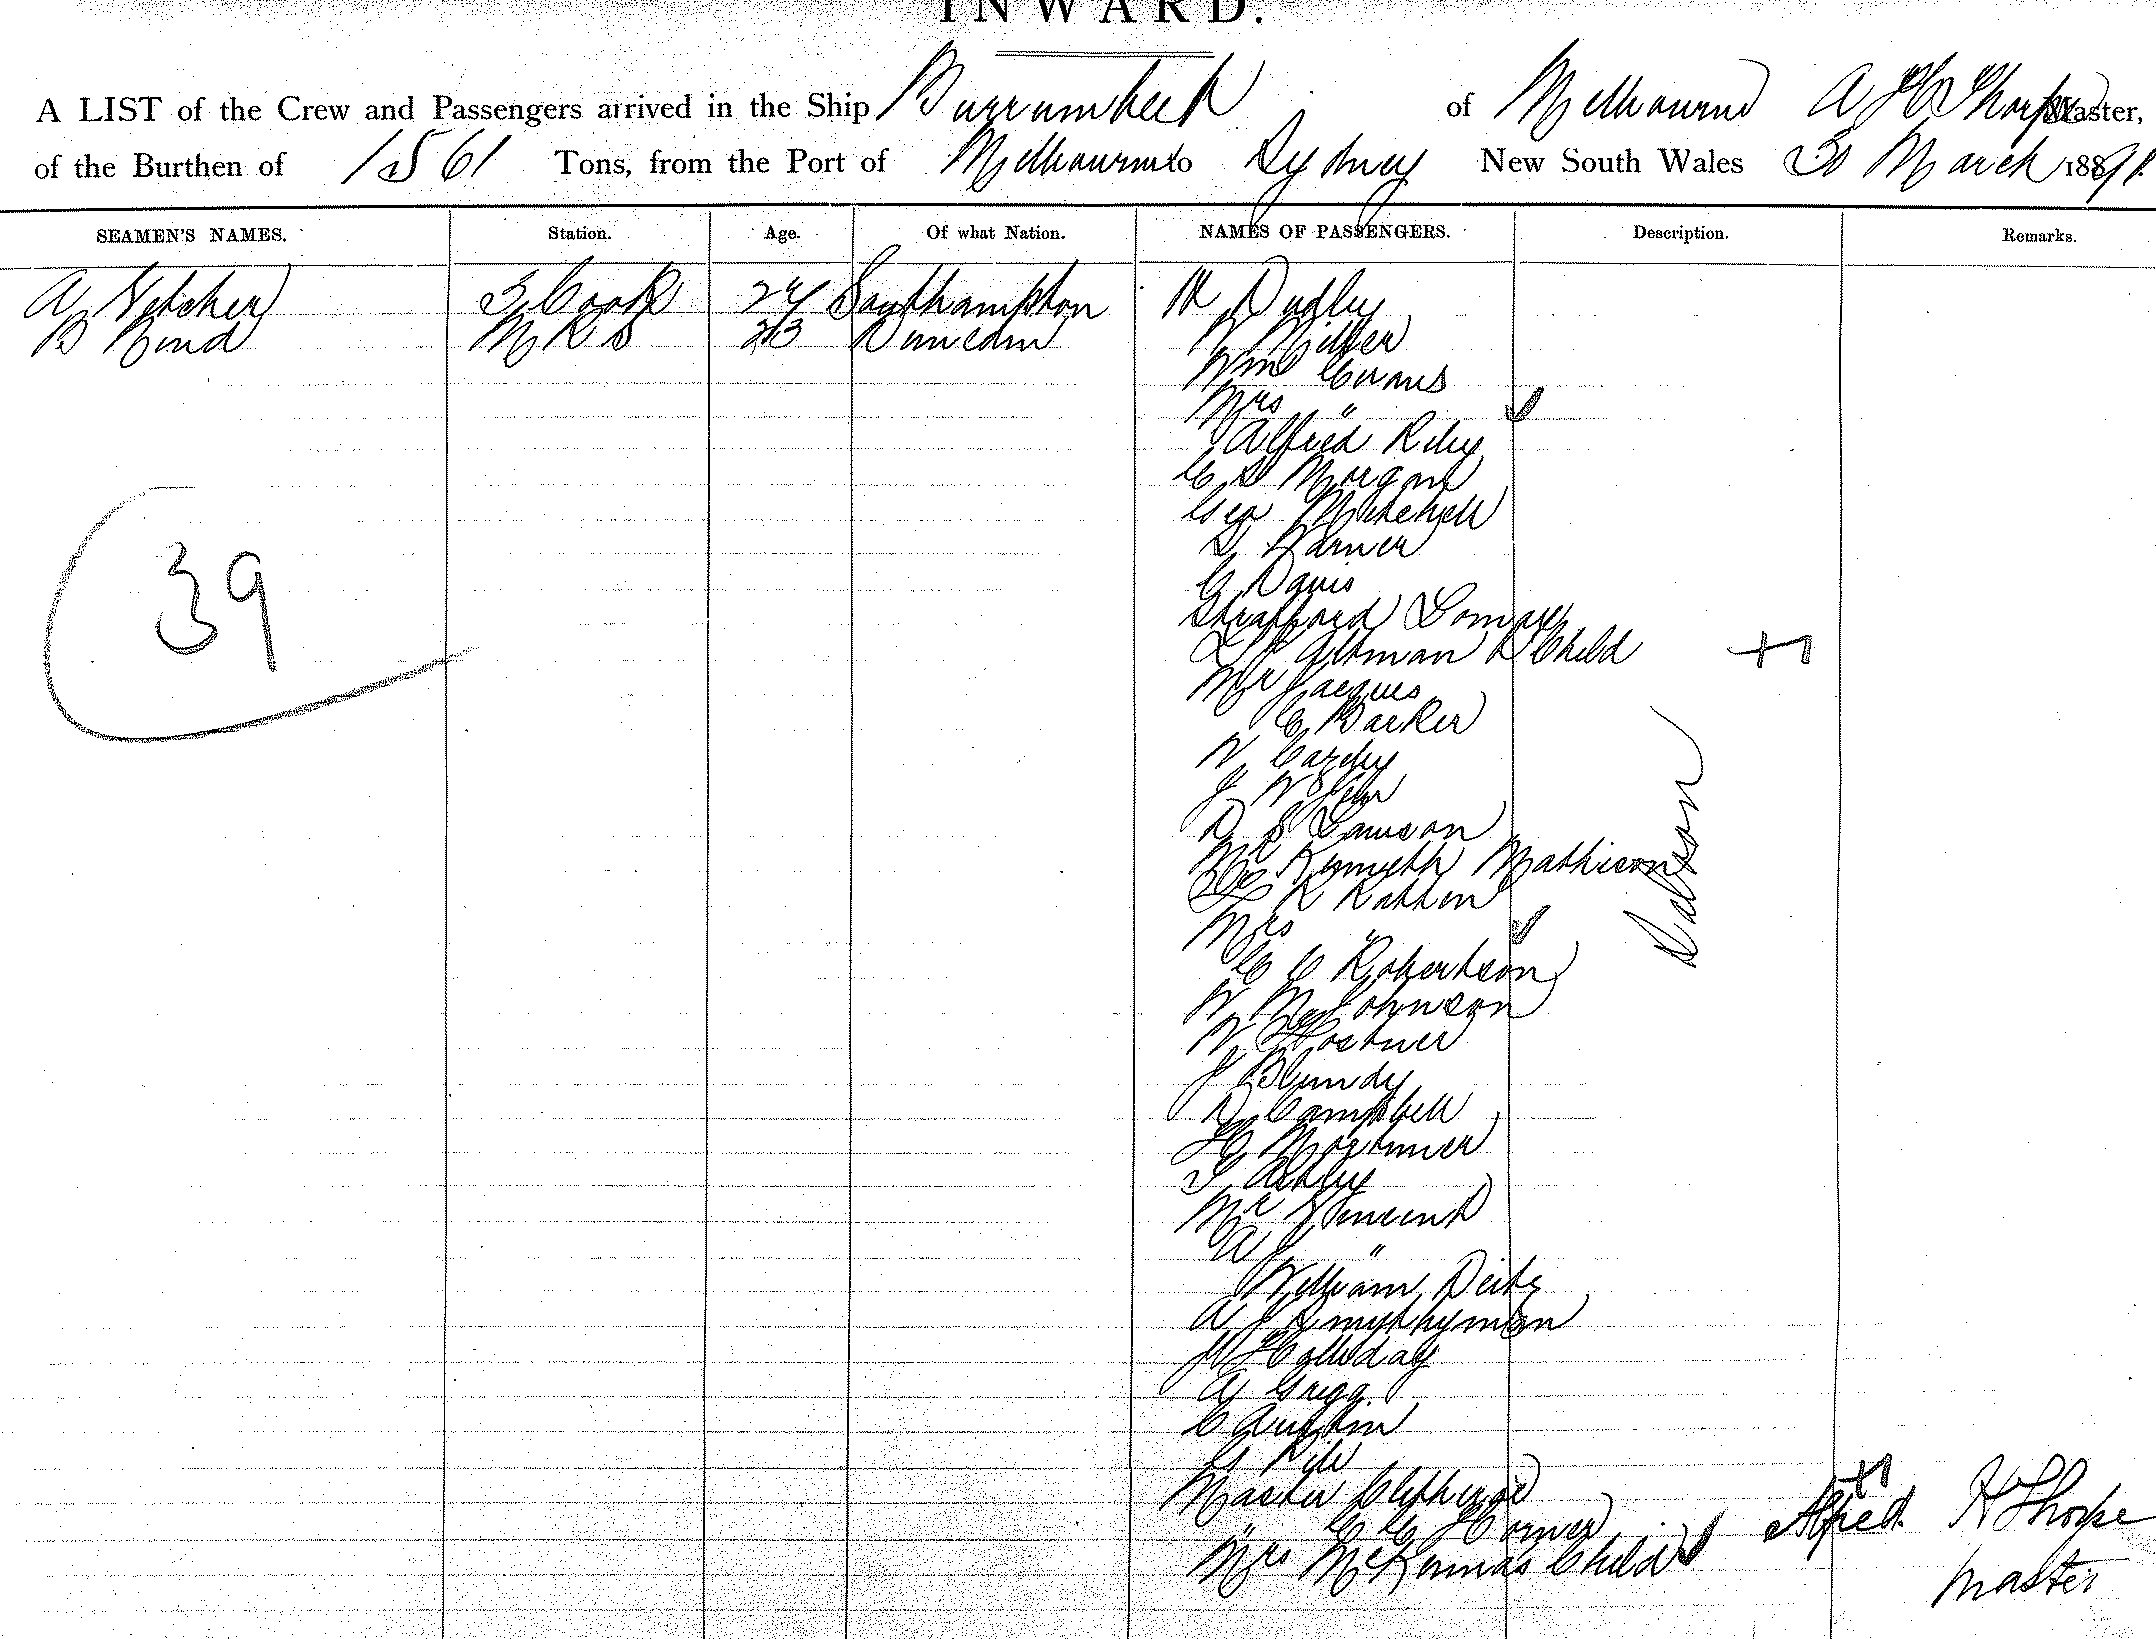 INWARD.
A LIST of the Crew and Passengers arrived in the Ship Burrumbeet of Melbourne A H Thorpe Master,
of the Burthen of 1561 Tons, from the Port of Melbourne to Sydney New South Wales 30 March 1891.
SEAMEN'S NAMES. Station. Age. Of what Nation. NAMES OF PASSENGERS. Description. Remarks.
A 3 Cook 24 Southampton Dudley
B Bond M R S 23 Dunedin W Miller
Wm Evans
Mrs "
Alfred Riley
C S Morgan
Geo Mitchell
S Warner
C Davis
Strafford Lomax
Altman & Child +1
39
Mr Jacques
C Barker
W
J W
D S Lawson
Mr Kenneth Mathieson
R Ratten
Mrs "
Dalson
C C Robertson
W M Johnson
W
J Blundy
D Campbell
H Mortimer
T Ashley
Mr Vincent
A "
William Deitz
A J Smythyman
W Holliday
A Grigg
C Austin
G
Master +1
" C C Horner Alfred H Thorpe
Mrs McKenna & Child Master